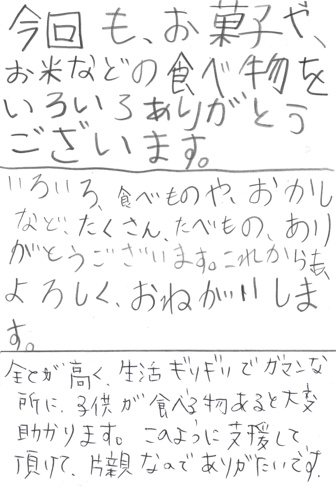 今回も、お菓子や、
お米などの食べ物を
いろいろありがとう
ございます。
いろいろ、食べものや、おかし
など、たくさん、たべもの、あり
がとうございます。これからも、
よろしく、おねがいしま
す。
全てが高く、生活ギリギリでガマンな
所に、子供が食べる物あると大変
助かります。このように支援して
頂けて、片親なのでありがたいです。